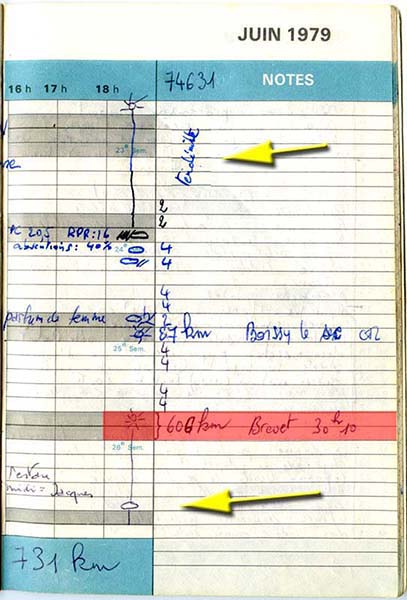 JUIN 1979
16 h 17 h 18 h 74631 NOTES
23e Sem. Tendinite
2
2
PC 205 RPR: 16
abstentions: 40% 24e 4
4
4
4
parfum de femme 2
87 km Boissy le sec
25e Sem. 4
4
4
4
606 km Brevet 30 hs 10
26e Sem.
midi = Jacques
731 km